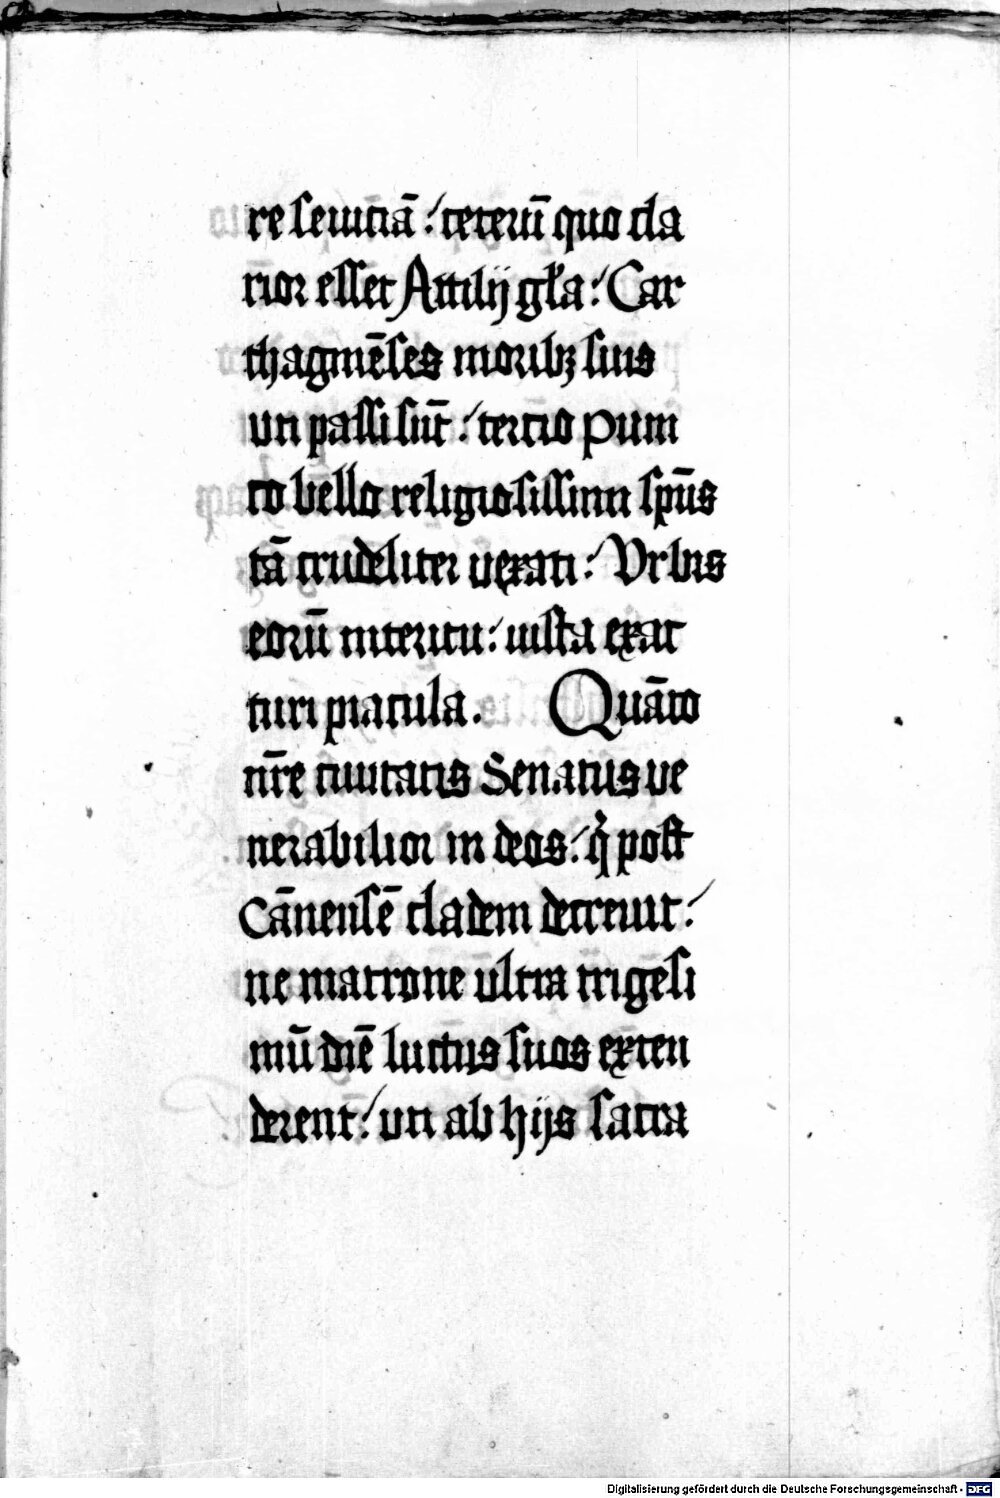 re seuiciā :/ ceterū quo cla
rior esset Attilij gľa :/ Car
thaginēses moribꝫ suis
uti passi sūt :/ tercio puni
co bello religiosissimi spūs
tā crudeliter uexati :/ Vrbis
eorū interitu :/ iusta exac
turi piacula . Quāto
nr̄e ciuitatis Senatus ve
nerabilior in deos :/ q̇ post
Cānensē cladem decreuit :/
ne matrone ultra trigesi
mū diē luctus suos exten
derent :/ uti ab hijs sacra
Digitalisierung gefördert durch die Deutsche Forschungsgemeinschaft - DFG